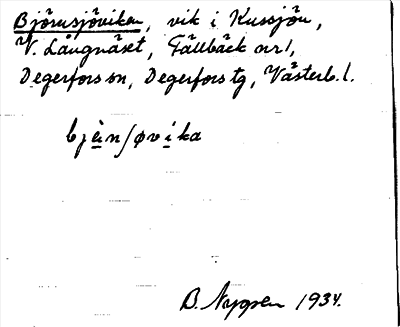 Björnsjöviken, vik i Kussjön,
V. Långnäset, Fällbäck nr 1,
Degerfors sn, Degerfors tg, Västerb. l.
bjè̱nʃøvi̱ka
B. Nygren 1934.